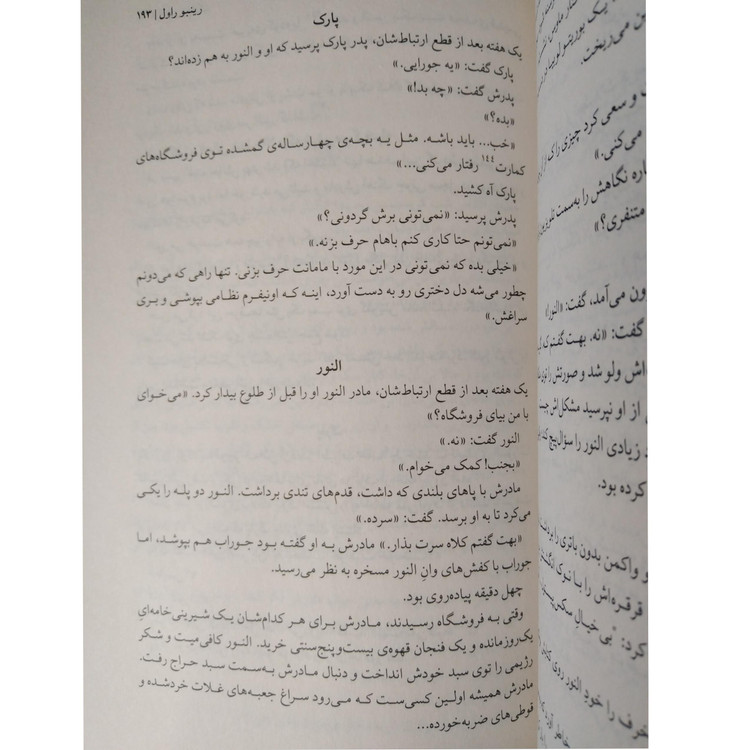 رینبو راول | ۱۹۳
پارک
یک هفته بعد از قطع ارتباط‌شان، پدر پارک پرسید که او و النور به هم زده‌اند؟
پارک گفت: «یه جورایی.»
پدرش گفت: «چه بد!»
«بده؟»
«خب... باید باشه. مثل یه بچه‌ی چهارساله‌ی گمشده توی فروشگاه‌های
کمارت۱۴۴ رفتار می‌کنی...»
پارک آه کشید.
پدرش پرسید: «نمی‌تونی برش گردونی؟»
«نمی‌تونم حتا کاری کنم باهام حرف بزنه.»
«خیلی بده که نمی‌تونی در این مورد با مامانت حرف بزنی. تنها راهی که می‌دونم
چطور می‌شه دل دختری رو به دست آورد، اینه که اونیفرم نظامی بپوشی و بری
سراغش.»
النور
یک هفته بعد از قطع ارتباط‌شان، مادر النور او را قبل از طلوع بیدار کرد. «می‌خوای
با من بیای فروشگاه؟»
النور گفت: «نه.»
«بجنب! کمک می‌خوام.»
مادرش با پاهای بلندی که داشت، قدم‌های تندی برداشت. النور دو پله را یکی
می‌کرد تا به او برسد. گفت: «سرده.»
«بهت گفتم کلاه سرت بذار.» مادرش به او گفته بود جوراب هم بپوشد، اما
جوراب با کفش‌های وانِ النور مسخره به نظر می‌رسید.
چهل دقیقه پیاده‌روی بود.
وقتی به فروشگاه رسیدند، مادرش برای هر کدام‌شان یک شیرینی خامه‌ای
یک‌روزمانده و یک فنجان قهوه‌ی بیست‌وپنج‌سنتی خرید. النور کافی‌میت و شکر
رژیمی را توی سبد خودش انداخت و دنبال مادرش به‌سمت سبد حراج رفت.
مادرش همیشه اولین کسی‌ست که می‌رود سراغ جعبه‌های غلات خردشده و
قوطی‌های ضربه‌خورده...
می‌ریخت.
و سعی کرد چیزی را که از
می‌کنی.»
نگاهش را به‌سمت
متنفری؟»
می‌آمد، گفت: «النور!»
گفت: «نه. بهت گفتم
ولو شد و صورتش را توی
از او نپرسید مشکل‌اش
زیادی النور را سؤال‌پیچ
کرده بود.
و واکمن بدون باتری را
قرقره‌اش را با نوک
کرد: "بی خیالِ
را خودِ النور روی